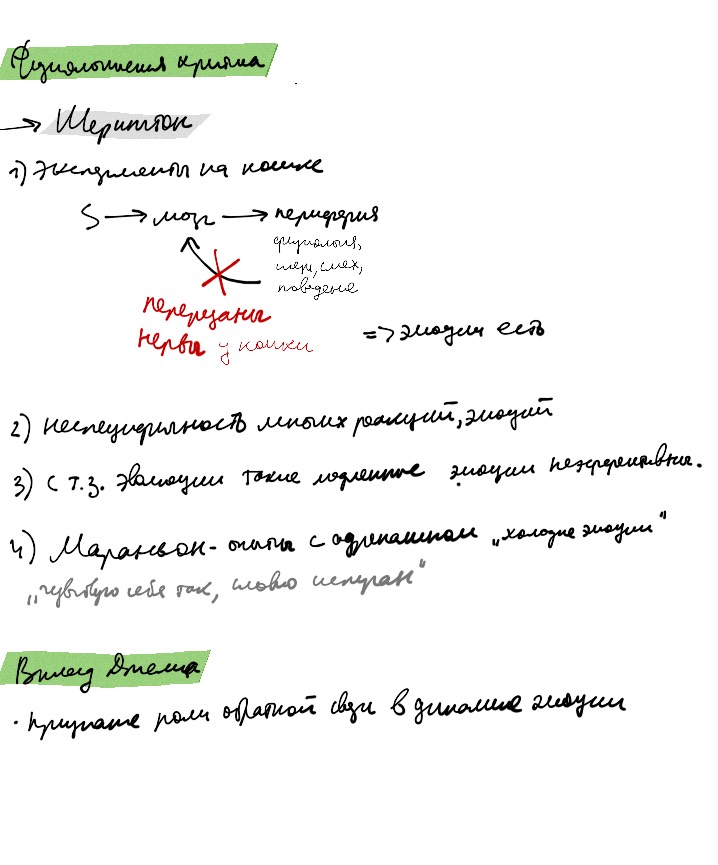 Физиологическая критика
→ Шеррингтон
1) Эксперименты на кошке
S → мозг → периферия
физиология,
плач, смех,
поведение
перерезаны
нервы у кошки
=> эмоции есть
2) Неспецифичность многих реакций, эмоций
3) С т.з. эволюции такие медленные эмоции неэффективны.
4) Мараньон - опыты с адреналином „холодные эмоции"
„чувствую себя так, словно испуган"
Вклад Джемса
• признание роли обратной связи в динамике эмоции